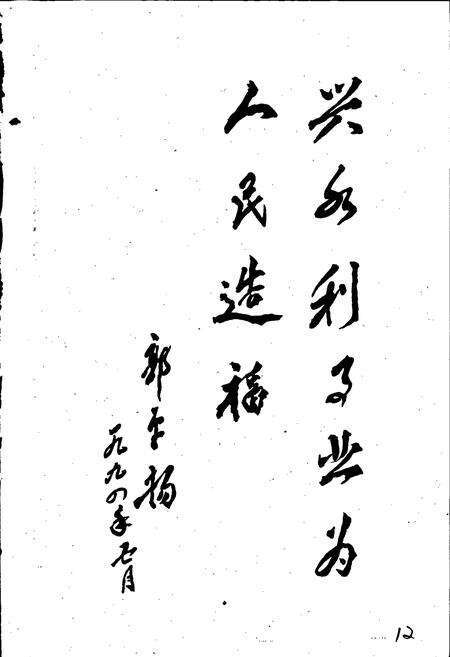 兴水利事业为
人民造福
郭

一九九四年七月
12